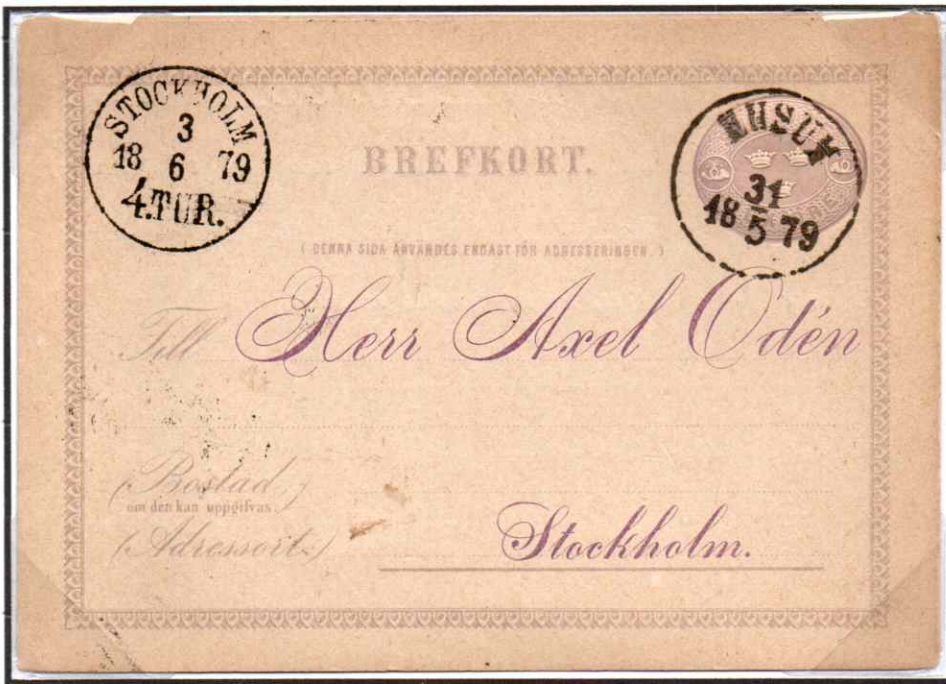 STOCKHOLM
3
18 6 79
4.TUR.
BREFKORT.
31
18 5 79
( DENNA SIDA ANVÄNDES ENDAST FÖR ADRESSERINGEN. )
Till Herr Axel Odén
(Bostad,)
om den kan uppgifvas.
(Adressort.) Stockholm.